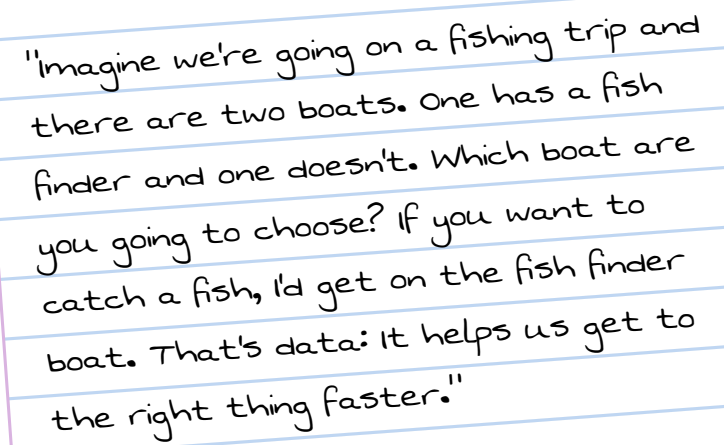 "Imagine we're going on a fishing trip and
there are two boats. One has a fish
finder and one doesn't. Which boat are
you going to choose? If you want to
catch a fish, I'd get on the fish finder
boat. That's data: It helps us get to
the right thing faster."